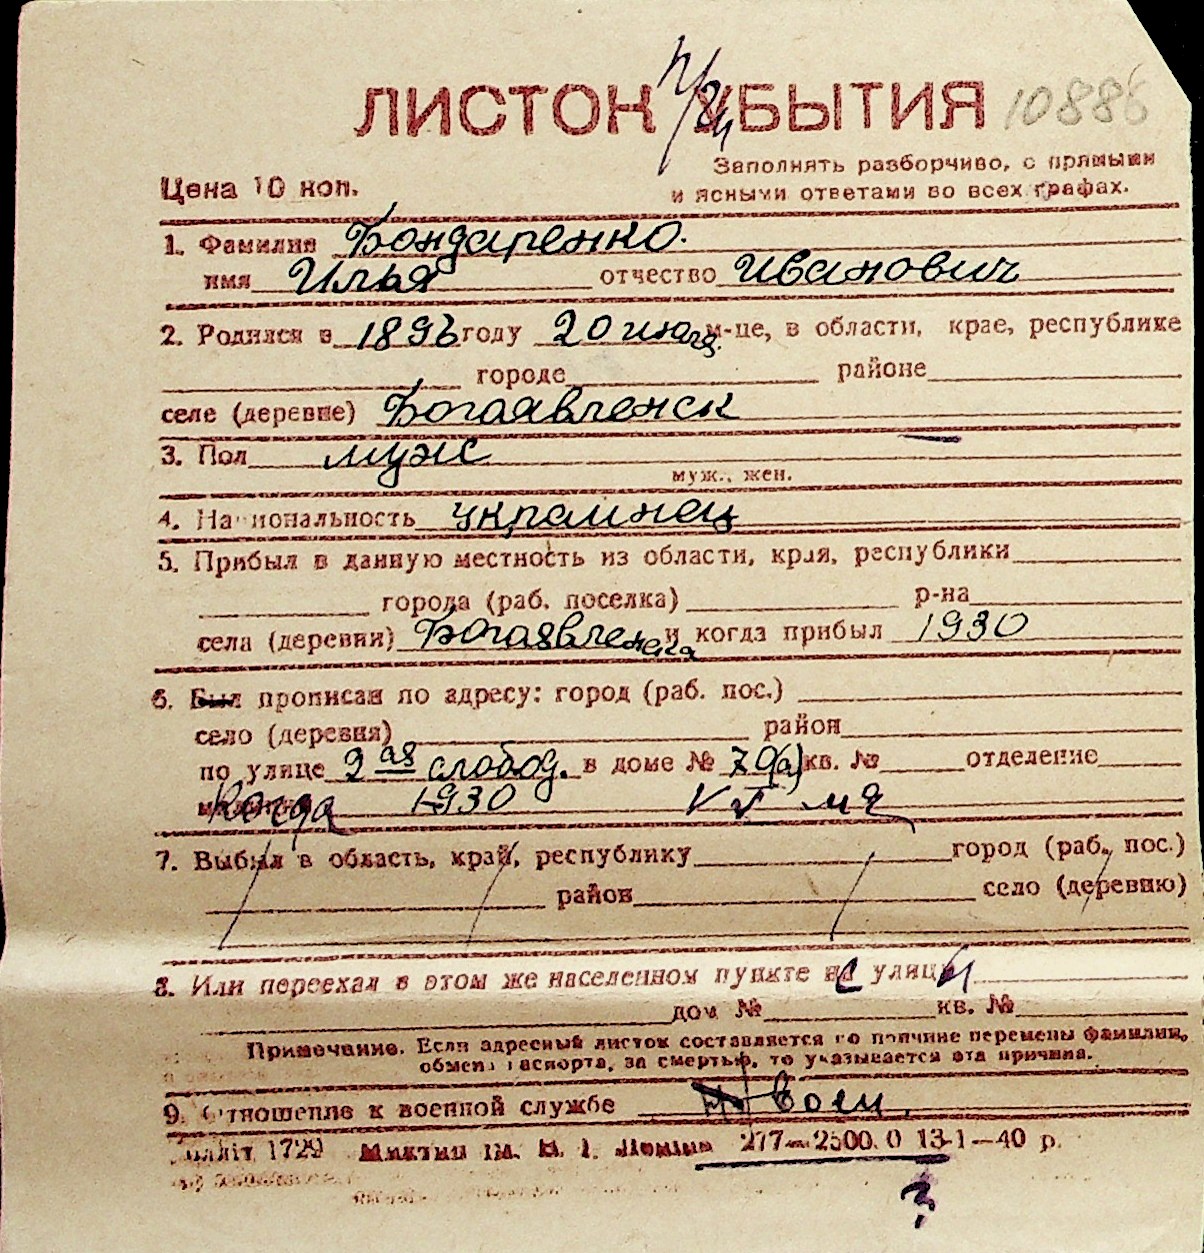 ЛИСТОК УБЫТИЯ 10886
Заполнять разборчиво, с прямыми
Цена 10 коп.
и ясными ответами во всех графах.
1. Фамилия Бондаренко.
имя Илья отчество Иванович
2. Родился в 1896 году 20 июля м-це, в области, крае, республике
городе районе
селе (деревне) Богоявленск
3. Пол муж
муж., жен.
4. Национальность украинец
5. Прибыл в данную местность из области, края, республики
города (раб. поселка) р-на
села (деревни) Богоявленска и когда прибыл 1930
6. Был прописан по адресу: город (раб. пос.)
село (деревня) район
по улице 2 ая слобод. в доме № 70(а) кв. № отделение
Когда 1930
7. Выбыл в область, край, республику город (раб. пос.)
район село (деревню)
8. Или переехал в этом же населенном пункте с улицы
дом № кв. №
Примечание. Если адресный листок составляется по причине перемены фамилии,
обмена паспорта, за смертью, то указывается эта причина.
9. Отношение к военной службе
1729 277—2500.0 13-1—40 р.
?